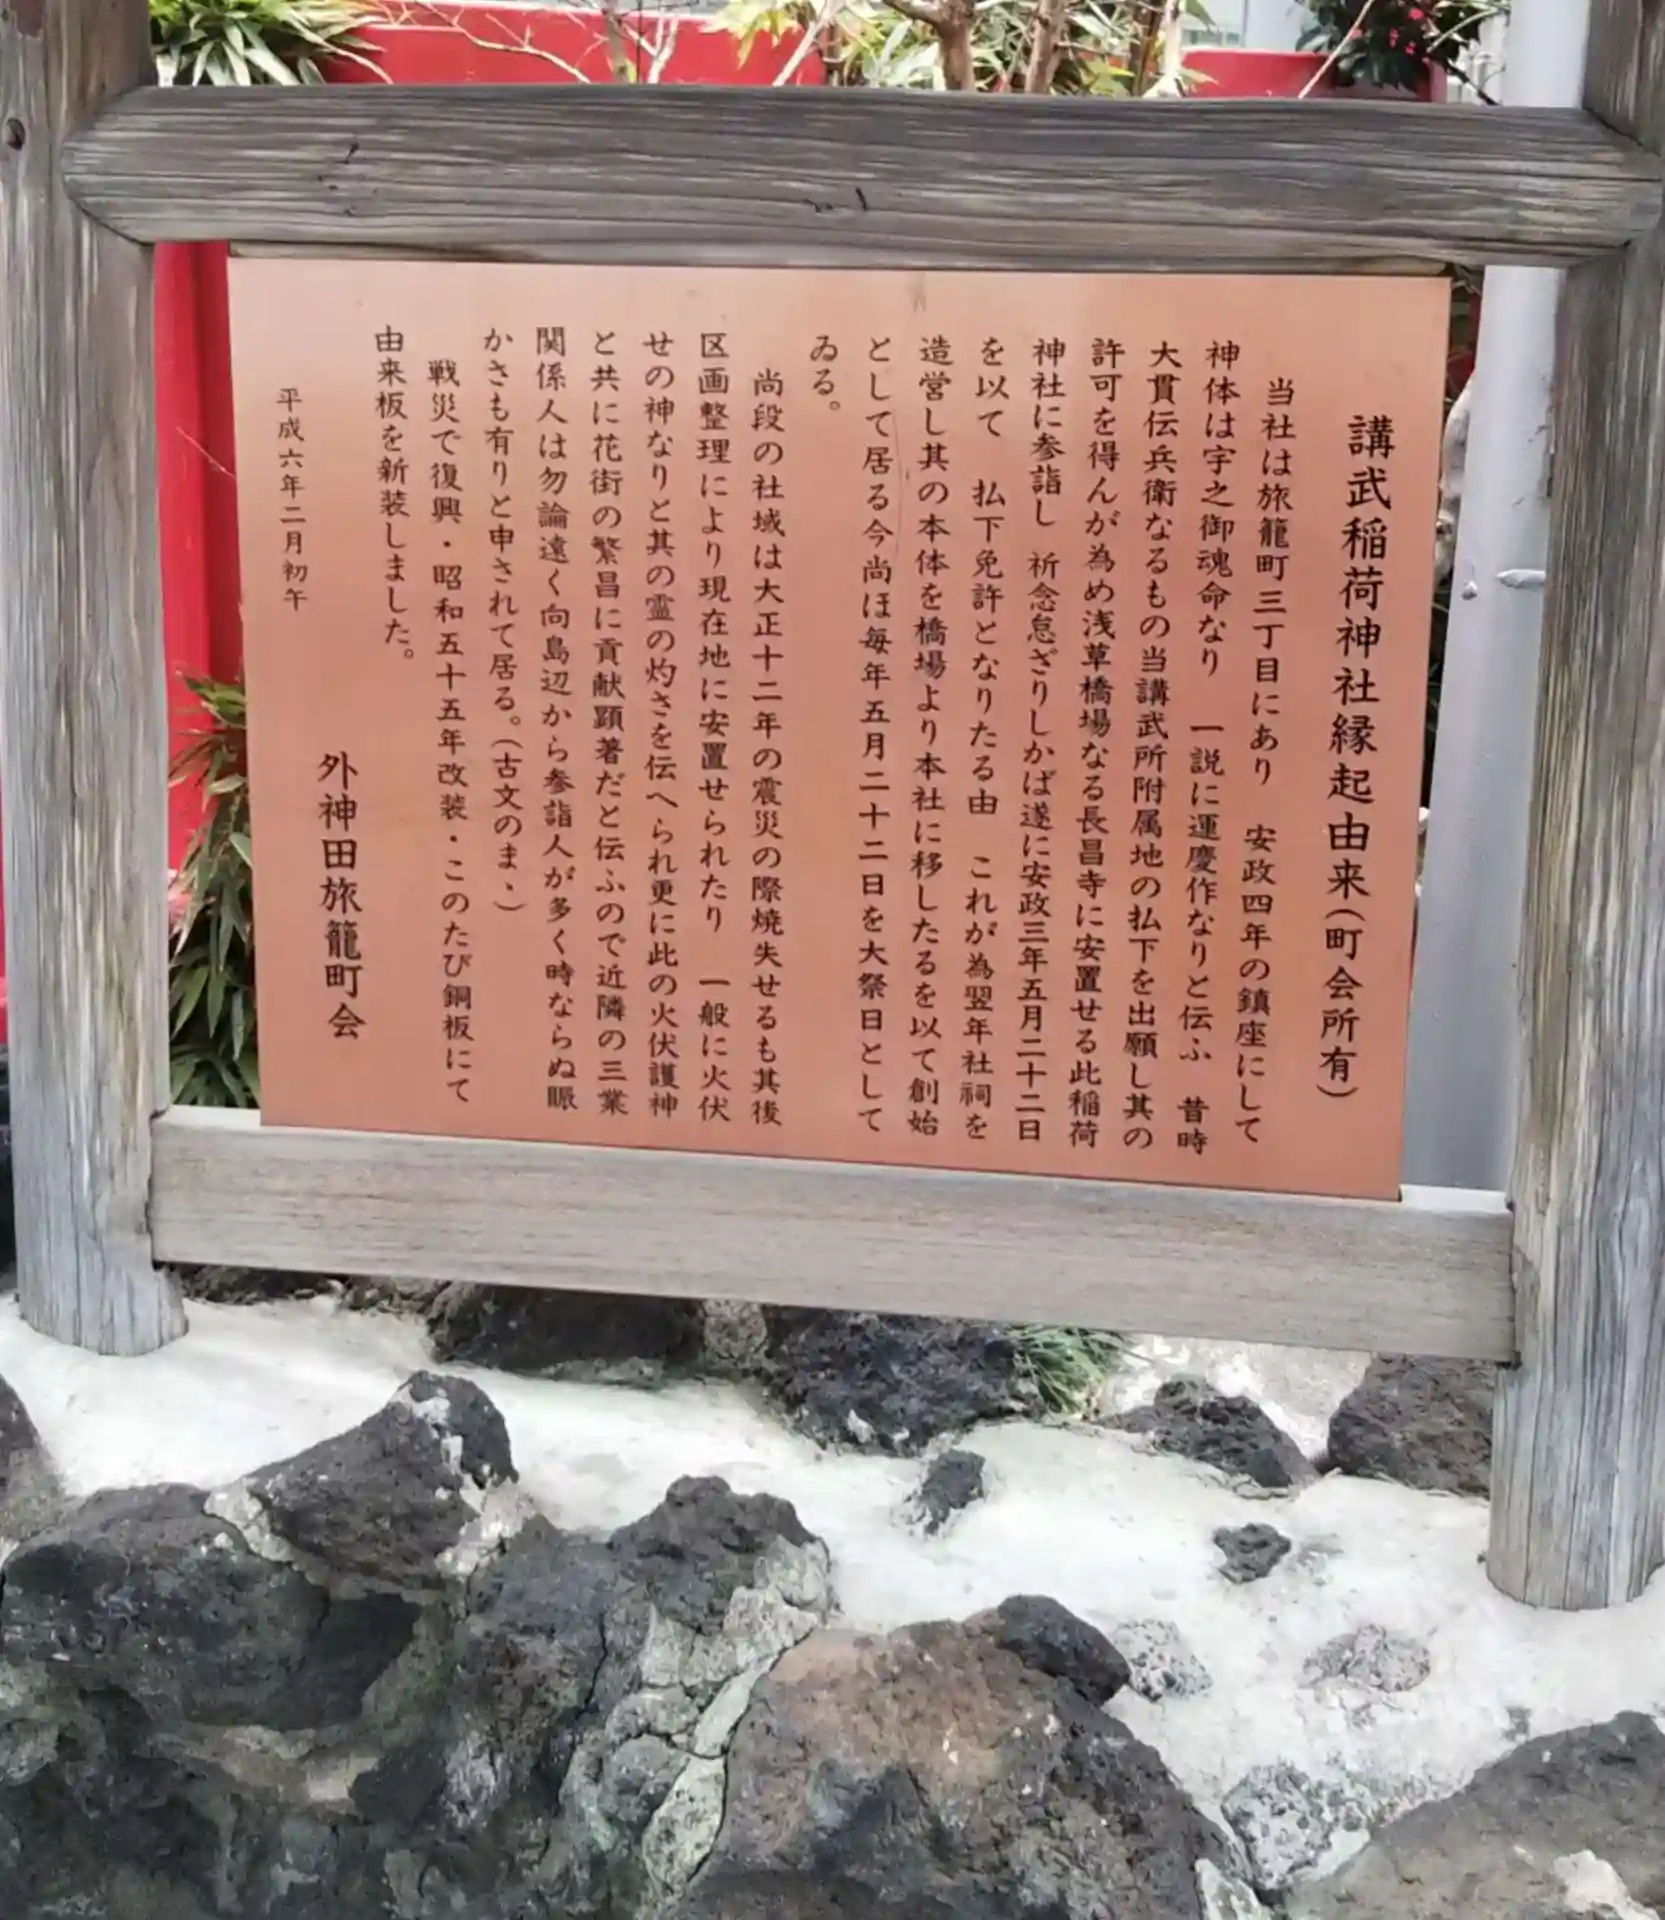 講武稲荷神社縁起由来(町会所有)
当社は旅籠町三丁目にあり　安政四年の鎮座にして
神体は宇之御魂命なり　一説に運慶作なりと伝ふ　昔時
大貫伝兵衛なるもの当講武所附属地の払下を出願し其の
許可を得んが為め浅草橋場なる長昌寺に安置せる此稲荷
神社に参詣し　祈念怠ざりしかば遂に安政三年五月二十二日
を以て　払下免許となりたる由　これが為翌年社祠を
造営し其の本体を橋場より本社に移したるを以て創始
として居る今尚ほ毎年五月二十二日を大祭日として
ゐる。
尚段の社域は大正十二年の震災の際焼失せるも其後
区画整理により現在地に安置せられたり　一般に火伏
せの神なりと其の霊の灼さを伝へられ更に此の火伏護神
と共に花街の繁昌に貢献顕著だと伝ふので近隣の三業
関係人は勿論遠く向島辺から参詣人が多く時ならぬ賑
かさも有りと申されて居る。(古文のまゝ)
戦災で復興・昭和五十五年改装・このたび銅板にて
由来板を新装しました。
平成六年二月初午
外神田旅籠町会